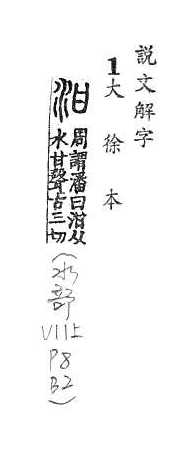 説文解字
1大徐本
泔 周謂潘曰泔从
水甘聲古三切
(水部
VII上
P8
B2)